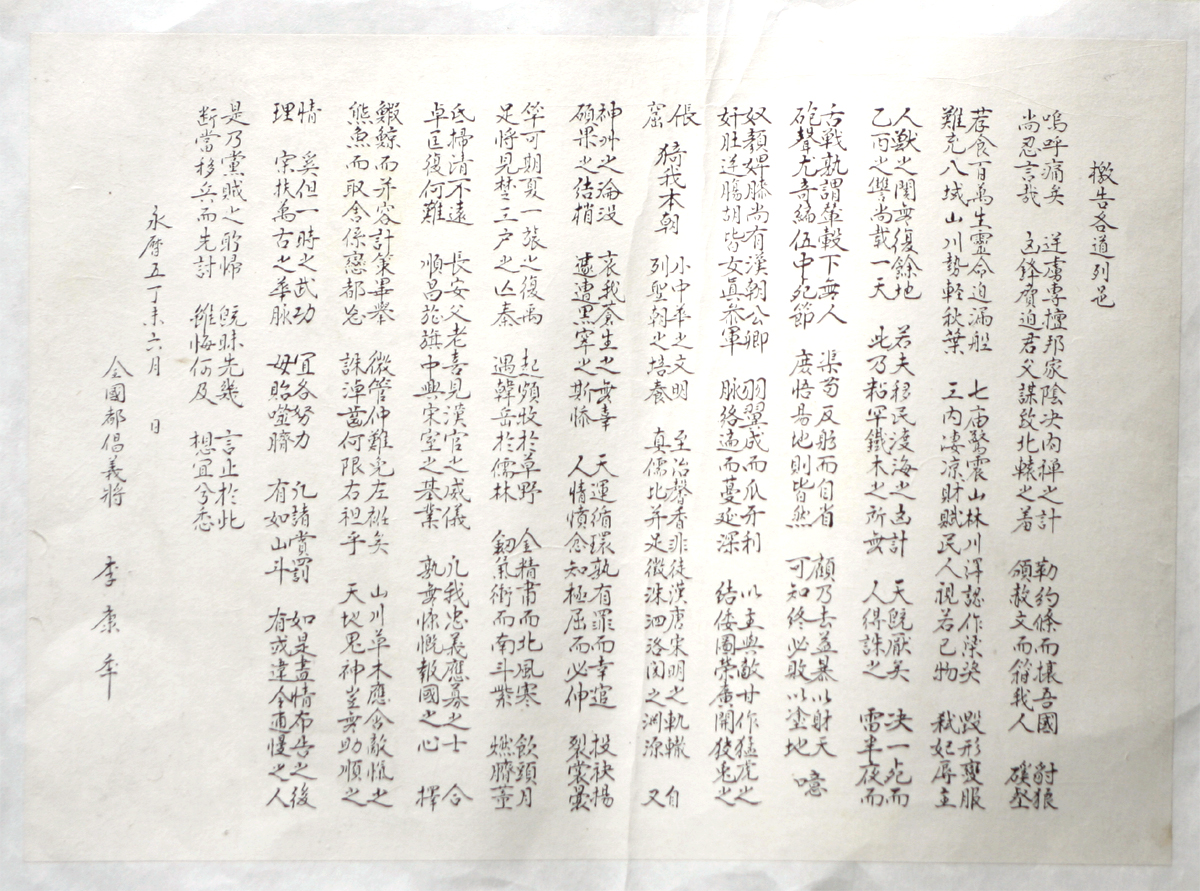 檄告各道列邑
嗚呼痛矣 逆虜專擅邦家陰决內禪之計 勒約條而攘吾國 豺狼
尚忍言哉 凶鋒脅迫君父謀致北轅之着 頒赦文而箝我人 磎壑
荐食百萬生靈命迫漏船 七庙驚震山林川澤認作榮 毁形變服
難充八域山川勢輕秋葉 三內凄凉財賦民人視若己物 弒妃辱主
人獸之閞無復餘地 若夫移民渡海之凶計 天旣厭矣 决一死而
乙丙之讐尚載一天 此乃粘罕鐵木之所無 人得誅之 雷半夜而
舌戰孰謂輦轂下無人 渠苟反躬而自省 顧乃去益暴以射天
砲聲尤奇編伍中死節 庶悟易地則皆然 可知終必敗以塗地 噫
奴顔婢膝尚有漢朝公卿 羽翼成而瓜牙利 以主與敵甘作猛虎之
奸肚逆膓胡皆女眞叅軍 脉络通而蔓延深 結倭圖榮廣開狡兎之
張 小中華之文明 至治馨香非徒漢唐宋明之軌轍 自
窟 猗我本朝 列聖朝之培養 真儒比并足徵洙泗洛閩之淵源 又
神州之淪没 哀我蒼生之無辜 天運循環孰有罪而幸逭 投袂揚
碩果之結梢 遽遭黑宰之斯慘 人情憤念知極屈而必伸 裂裳曩
竿可期夏一旅之復禹 起頗牧於草野 金精肅而北風寒 飲頭月
足將見楚三户之亡秦 遇韓岳於儒林 劒氣衝而南斗紫 燃臍董
氐掃清不遠 長安父老喜見漢官之威儀 凡我忠義應募之士 合
卓匡復何難 順昌旄旗中興宋室之基業 孰無慷慨報國之心 擇
鰕鯨而并容計策畢舉 微管仲難免左袵矣 山川草木應含敵愾之
熊魚而取舍係戀都忘 誅淖齒何限右袒乎 天地鬼神豈無助順之
情 奚但一時之武功 宜各努力 凡諸賞罰 如是盡情布告之後
理 宗扶萬古之華脉 毋貽噬臍 有如山斗 有或違令逋慢之人
是乃黨賊之歸 旣昧先幾 言止於此
断當移兵而先討 雖悔何及 想宜兮悉
永曆五丁未六月 日
全國都倡義將 李康秊